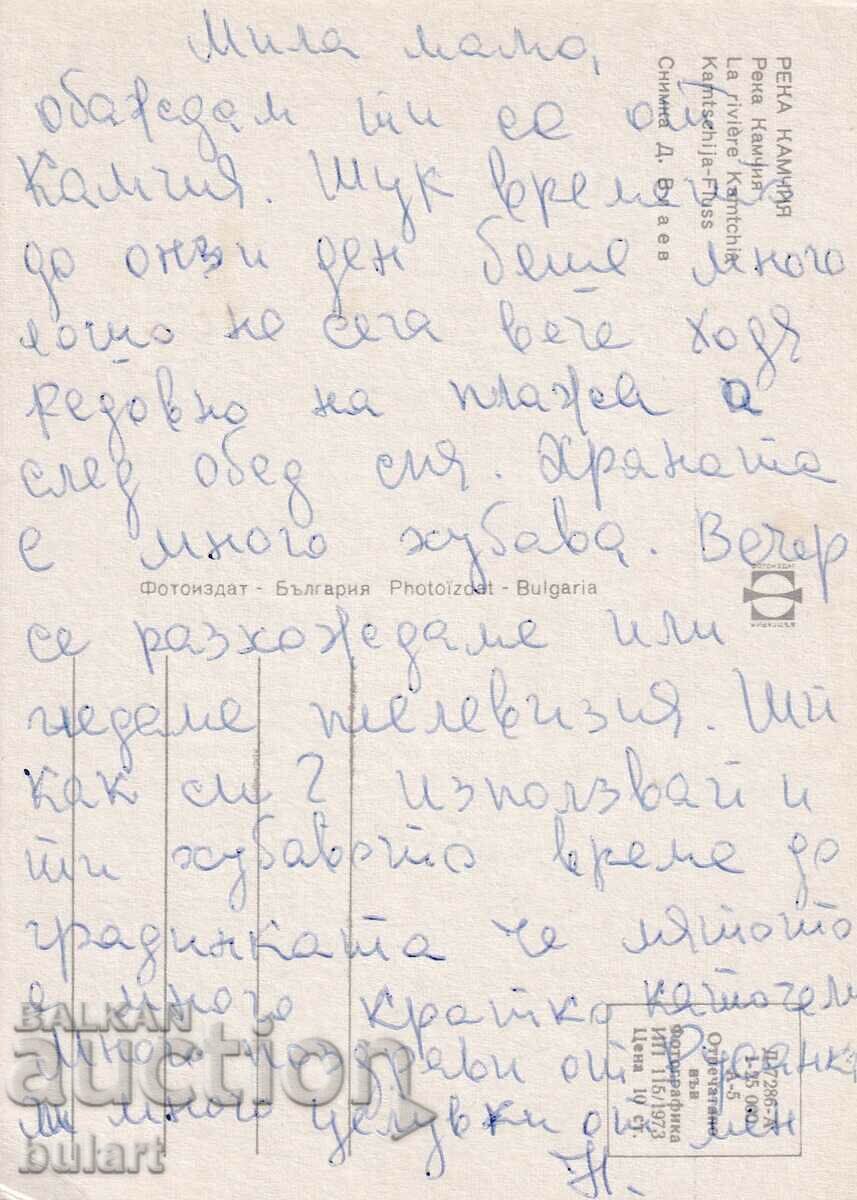 Мила мамо,
обаждам ти се от
Камчия. Тук времето
до онзи ден беше много
лошо но сега вече ходя
редовно на плажа а
след обед спя. Храната
е много хубава. Вечер
се разхождаме или
гледаме телевизия. Ти
как си? Използвай и
ти хубавото време до
градинката че лятото
е много кратко
Много поздрави от
и много целувки от мен
Н.
РЕКА КАМЧИЯ
Река Камчия
La rivière Kamtchia
Kamtschija-Fluss
Снимка Д. Влаев
Фотоиздат - България Photoïzdat - Bulgaria
ФОТОИЗДАТ
БЪЛГАРИЯ
1-35 000
А-5
Отпечатано
във
Фотографика
ИП 115/1973
Цена 10 ст.
BALKAN
auction
bulart